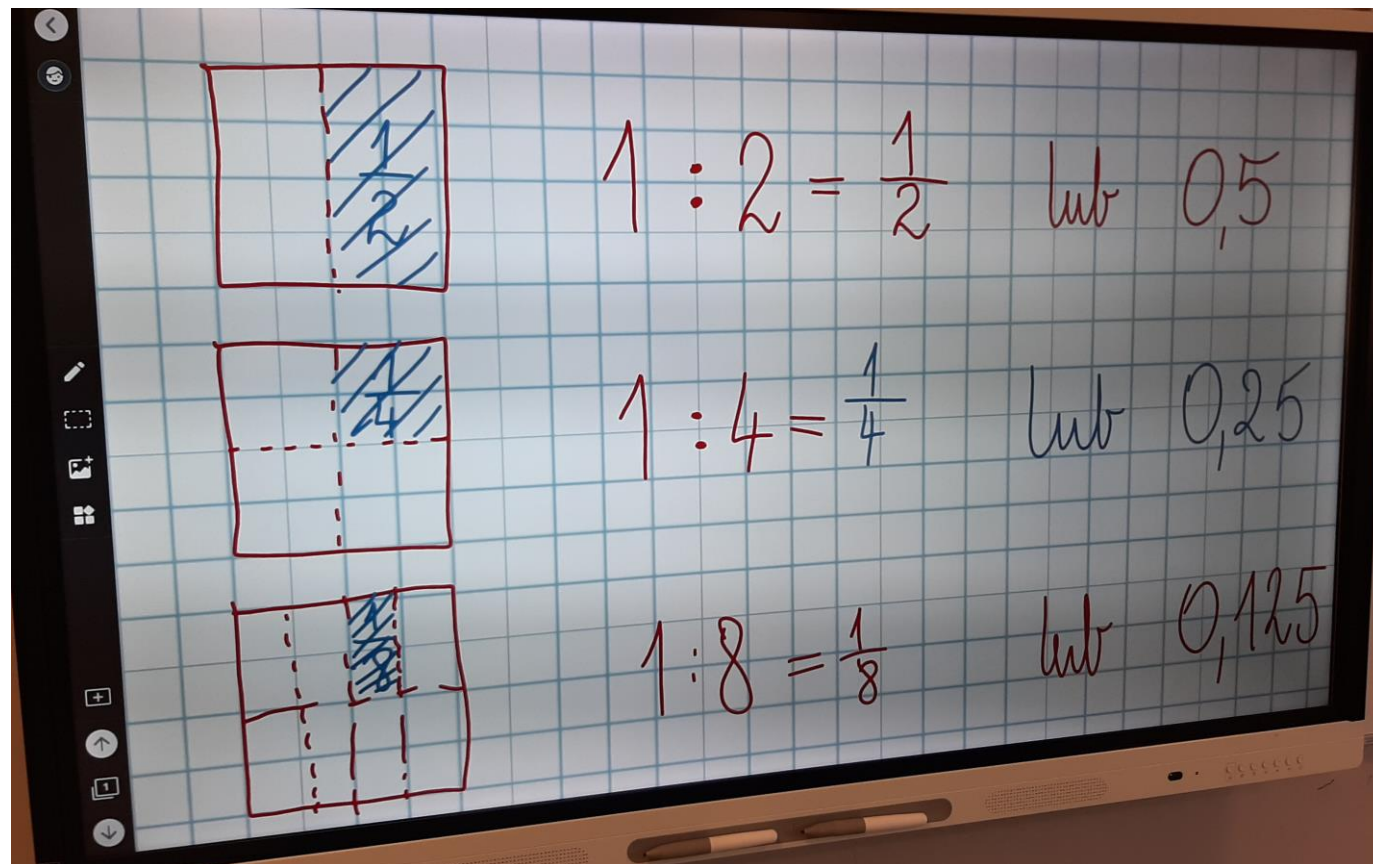 1/2
1 : 2 = 1/2 lub 0,5
1/4
1 : 4 = 1/4 lub 0,25
1/8
1 : 8 = 1/8 lub 0,125
1